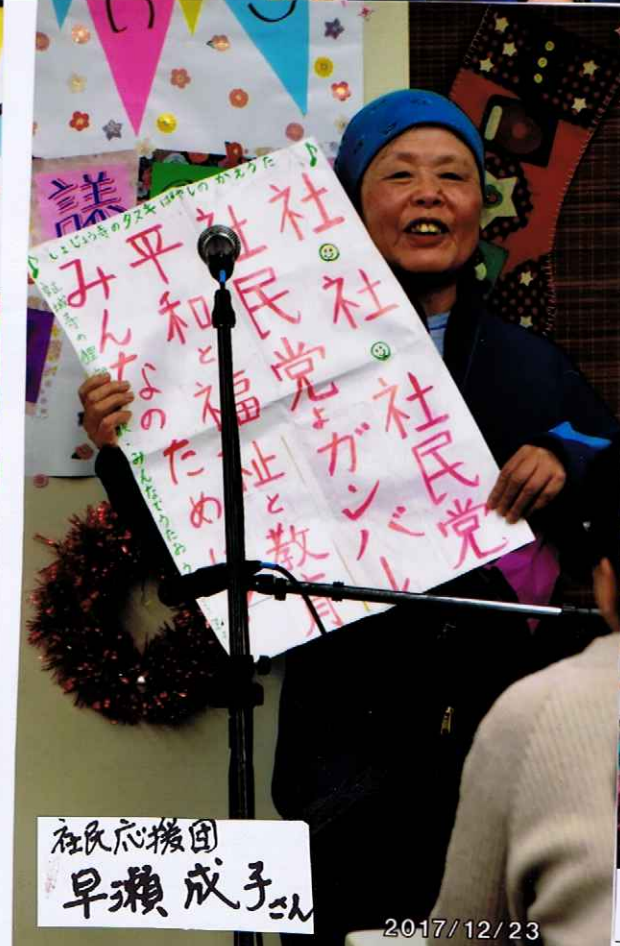 い
議
♪しょじょう寺のタヌキばやしのかえうた♪
社☺社☺社民党
社民党よガンバレ
平和と福祉と教育
みんなのため
みんなでうたおう
社民応援団
早瀬成子さん
2017/12/23